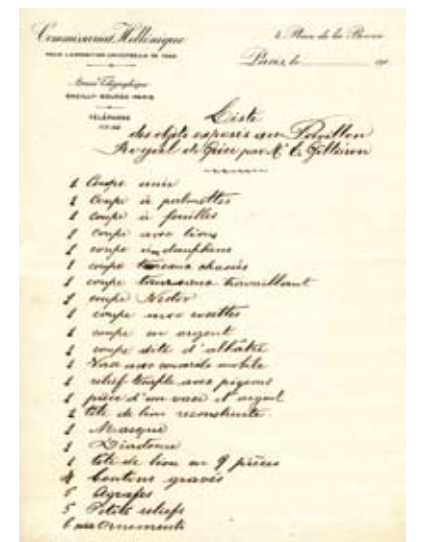 Commissariat Hellénique
POUR L'EXPOSITION UNIVERSELLE DE 1900
Adresse Télégraphique
PARIS
TÉLÉPHONE
4 Place de la Bourse
Paris, le 190
Liste
des objets exposés au Pavillon
Royal de Grèce par Mr E. Gilliéron
1 Coupe unie
1 Coupe à palmettes
1 coupe à feuilles
1 coupe avec lions
1 coupe dauphins
1 coupe taureaux chassés
1 coupe taureaux travaillant
1 coupe Nestor
1 coupe avec
1 coupe en argent
1 coupe dite d'albâtre
1 Vase avec mobile
1 relief temple avec pigeons
1 pièce d'un vase d'argent
2 tête de lion reconstruite
1 Masque
1 Diadème
1 tête de lion en 9 pièces
4 boutons gravés
5 Agrafes
5 Petits reliefs
6 Ornements